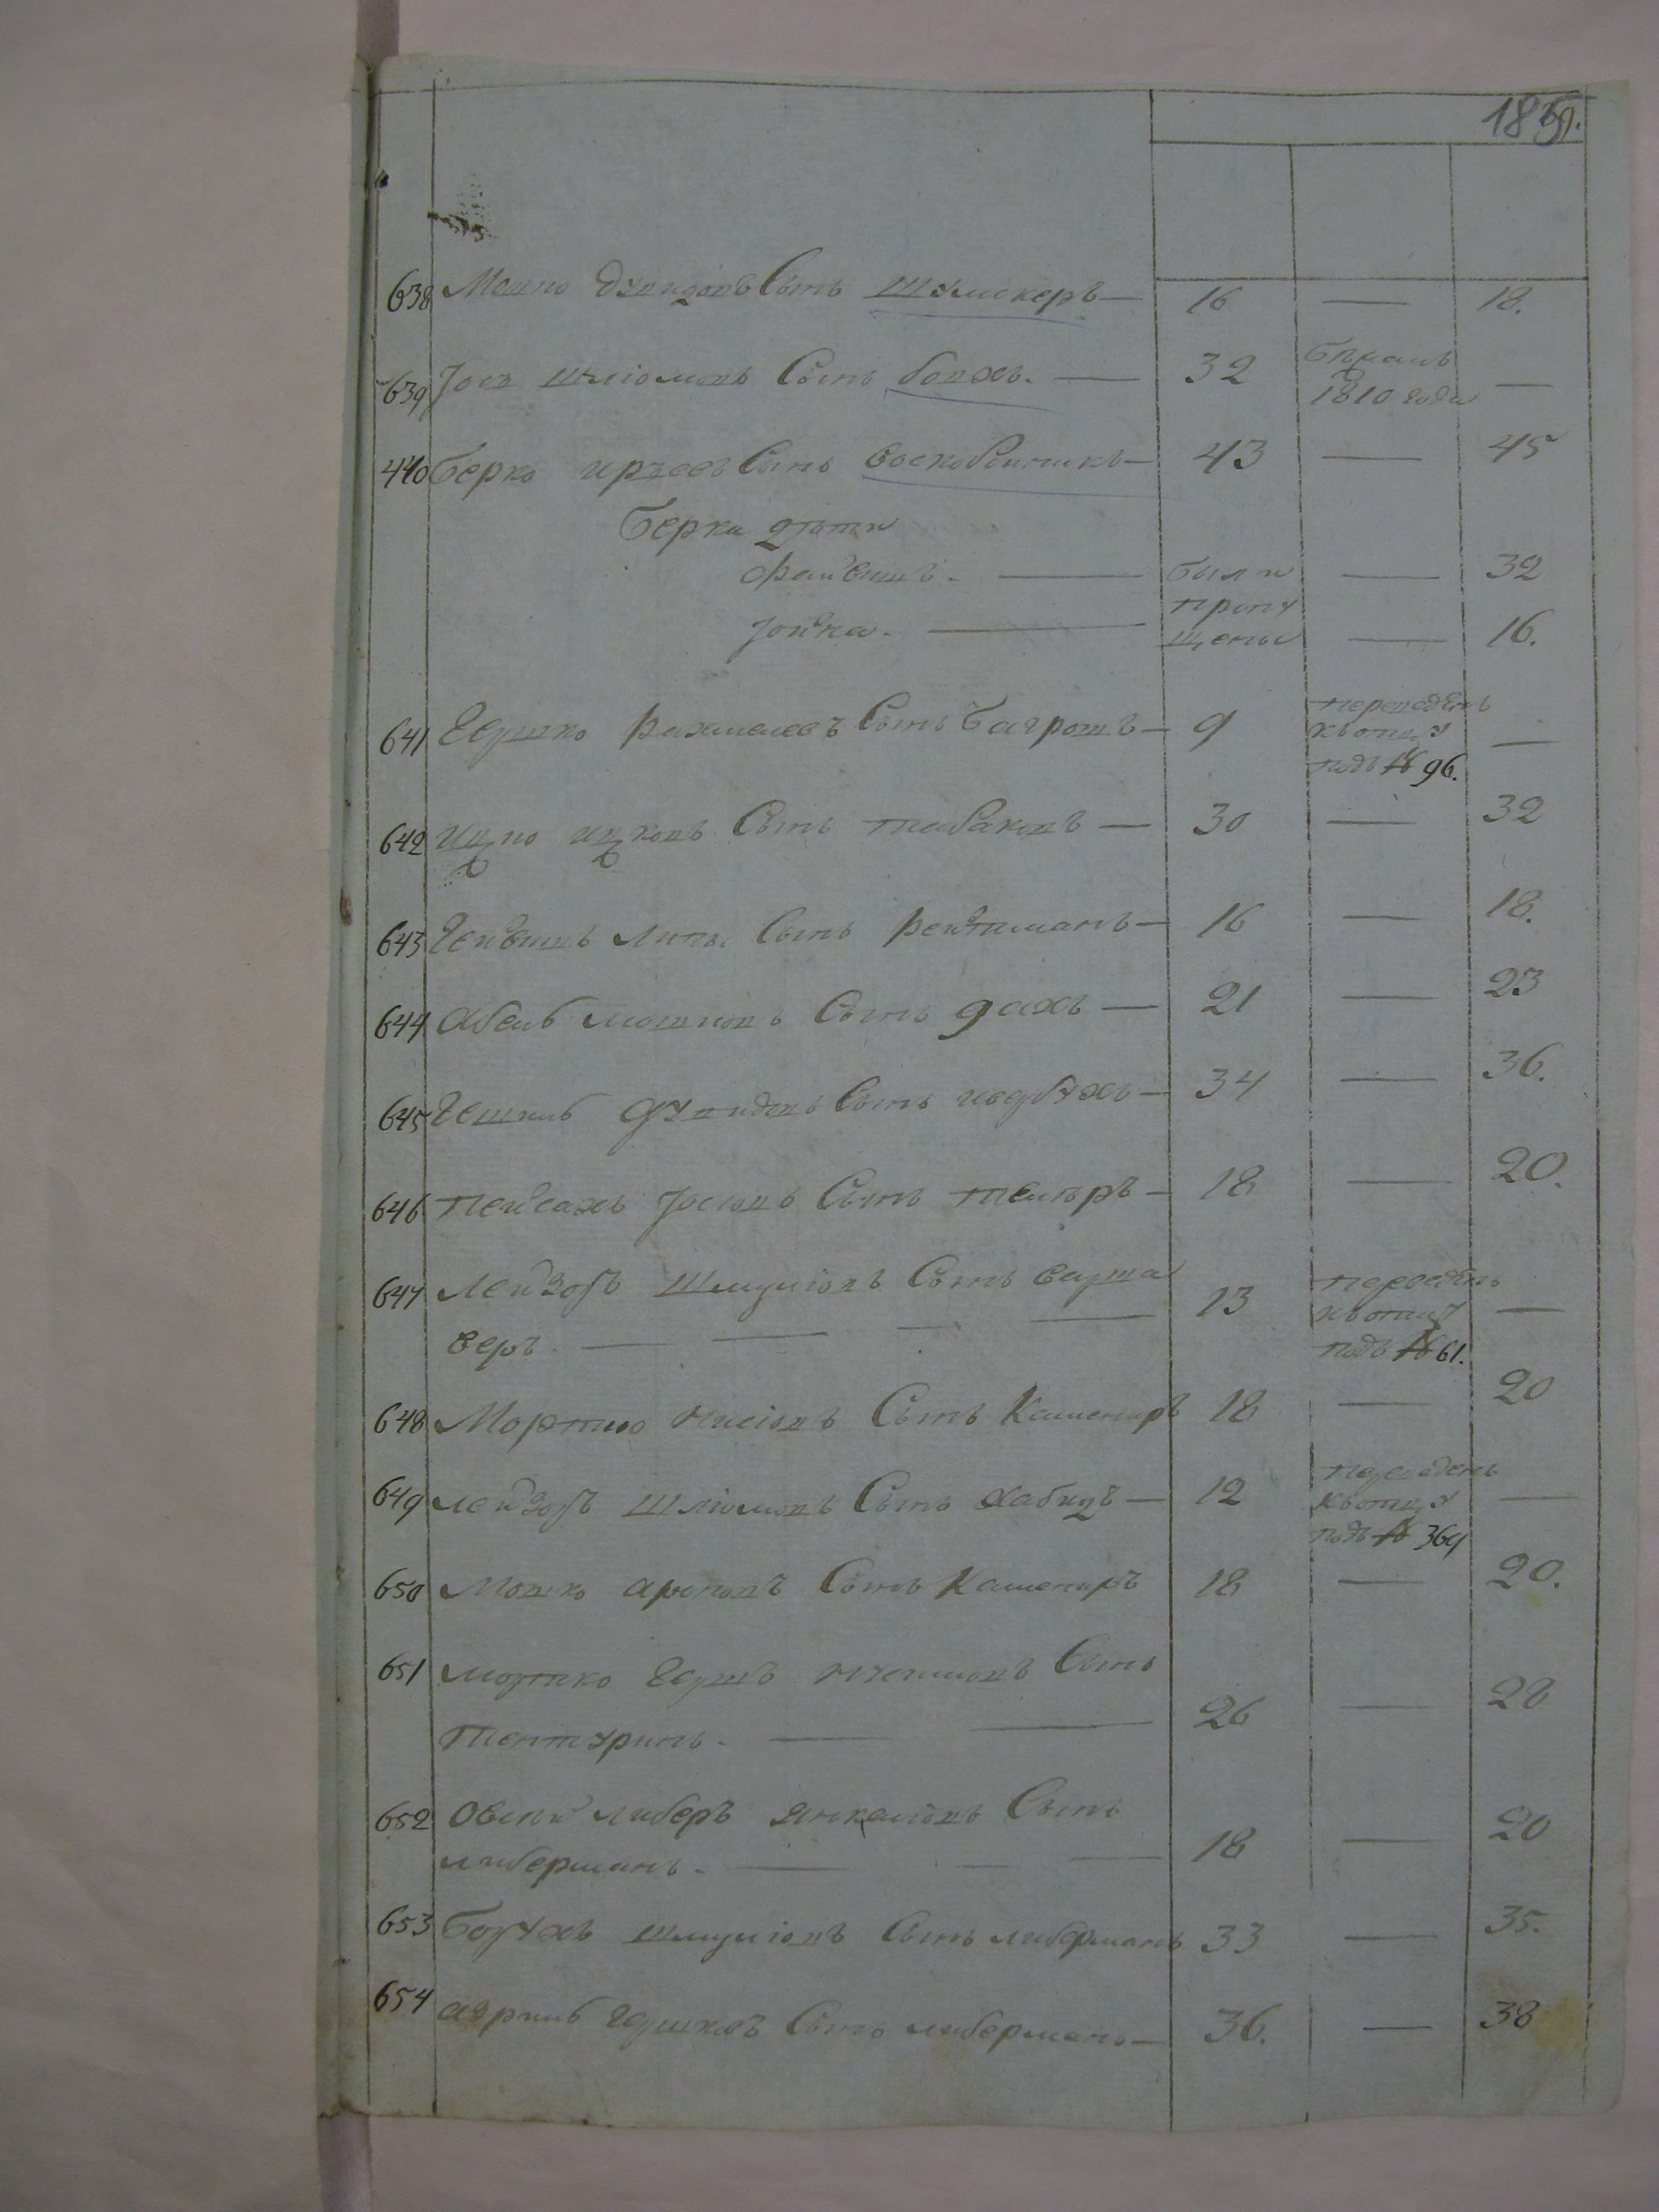 638 Мошко Дувидовъ Сынъ Шумскеръ — 16 — 18.
639 Јось Шліомовъ Сынъ боахъ. — 32 бѣжалъ —
1810 года
440 Берко ирзевъ Сынъ воскобойникъ — 43 — 45
Берка дѣти
Файвишъ. — были — 32
пропу
Јойна. — щены — 16.
641 Гершко Рахмелевъ Сынъ Багрошъ — 9 переведенъ —
къ отцу
подъ № 96.
642 Ицко ицковъ Сынъ табаковъ — 30 — 32
643 Лейвишъ Липы Сынъ Рейтманъ — 16 — 18.
644 Абель мошковъ Сынъ дахъ — 21 — 23
645 Гешель Дувидовъ Сынъ — 34 — 36.
646 Пейсахъ Јосіовъ Сынъ — 18 — 20.
647 Лейзоръ Шмуліовъ Сынъ
веръ. — 13 переведенъ —
къ отцу
подъ № 61.
648 Мортко Нисіовъ Сынъ Камениръ 18 — 20
649 лейзоръ Шліомовъ Сынъ хабидъ — 12 переведенъ —
къ отцу
подъ № 364
650 Мошко ароновъ Сынъ Камениръ 18 — 20.
651 мортко Гершъ Сынъ
26 — 28
652 Овсей либеръ Янкеліовъ Сынъ
либерманъ. — 18 — 20
653 Борухъ шмуліовъ Сынъ либерманъ 33 — 35.
654 Гершковъ Сынъ либерманъ — 36. — 38